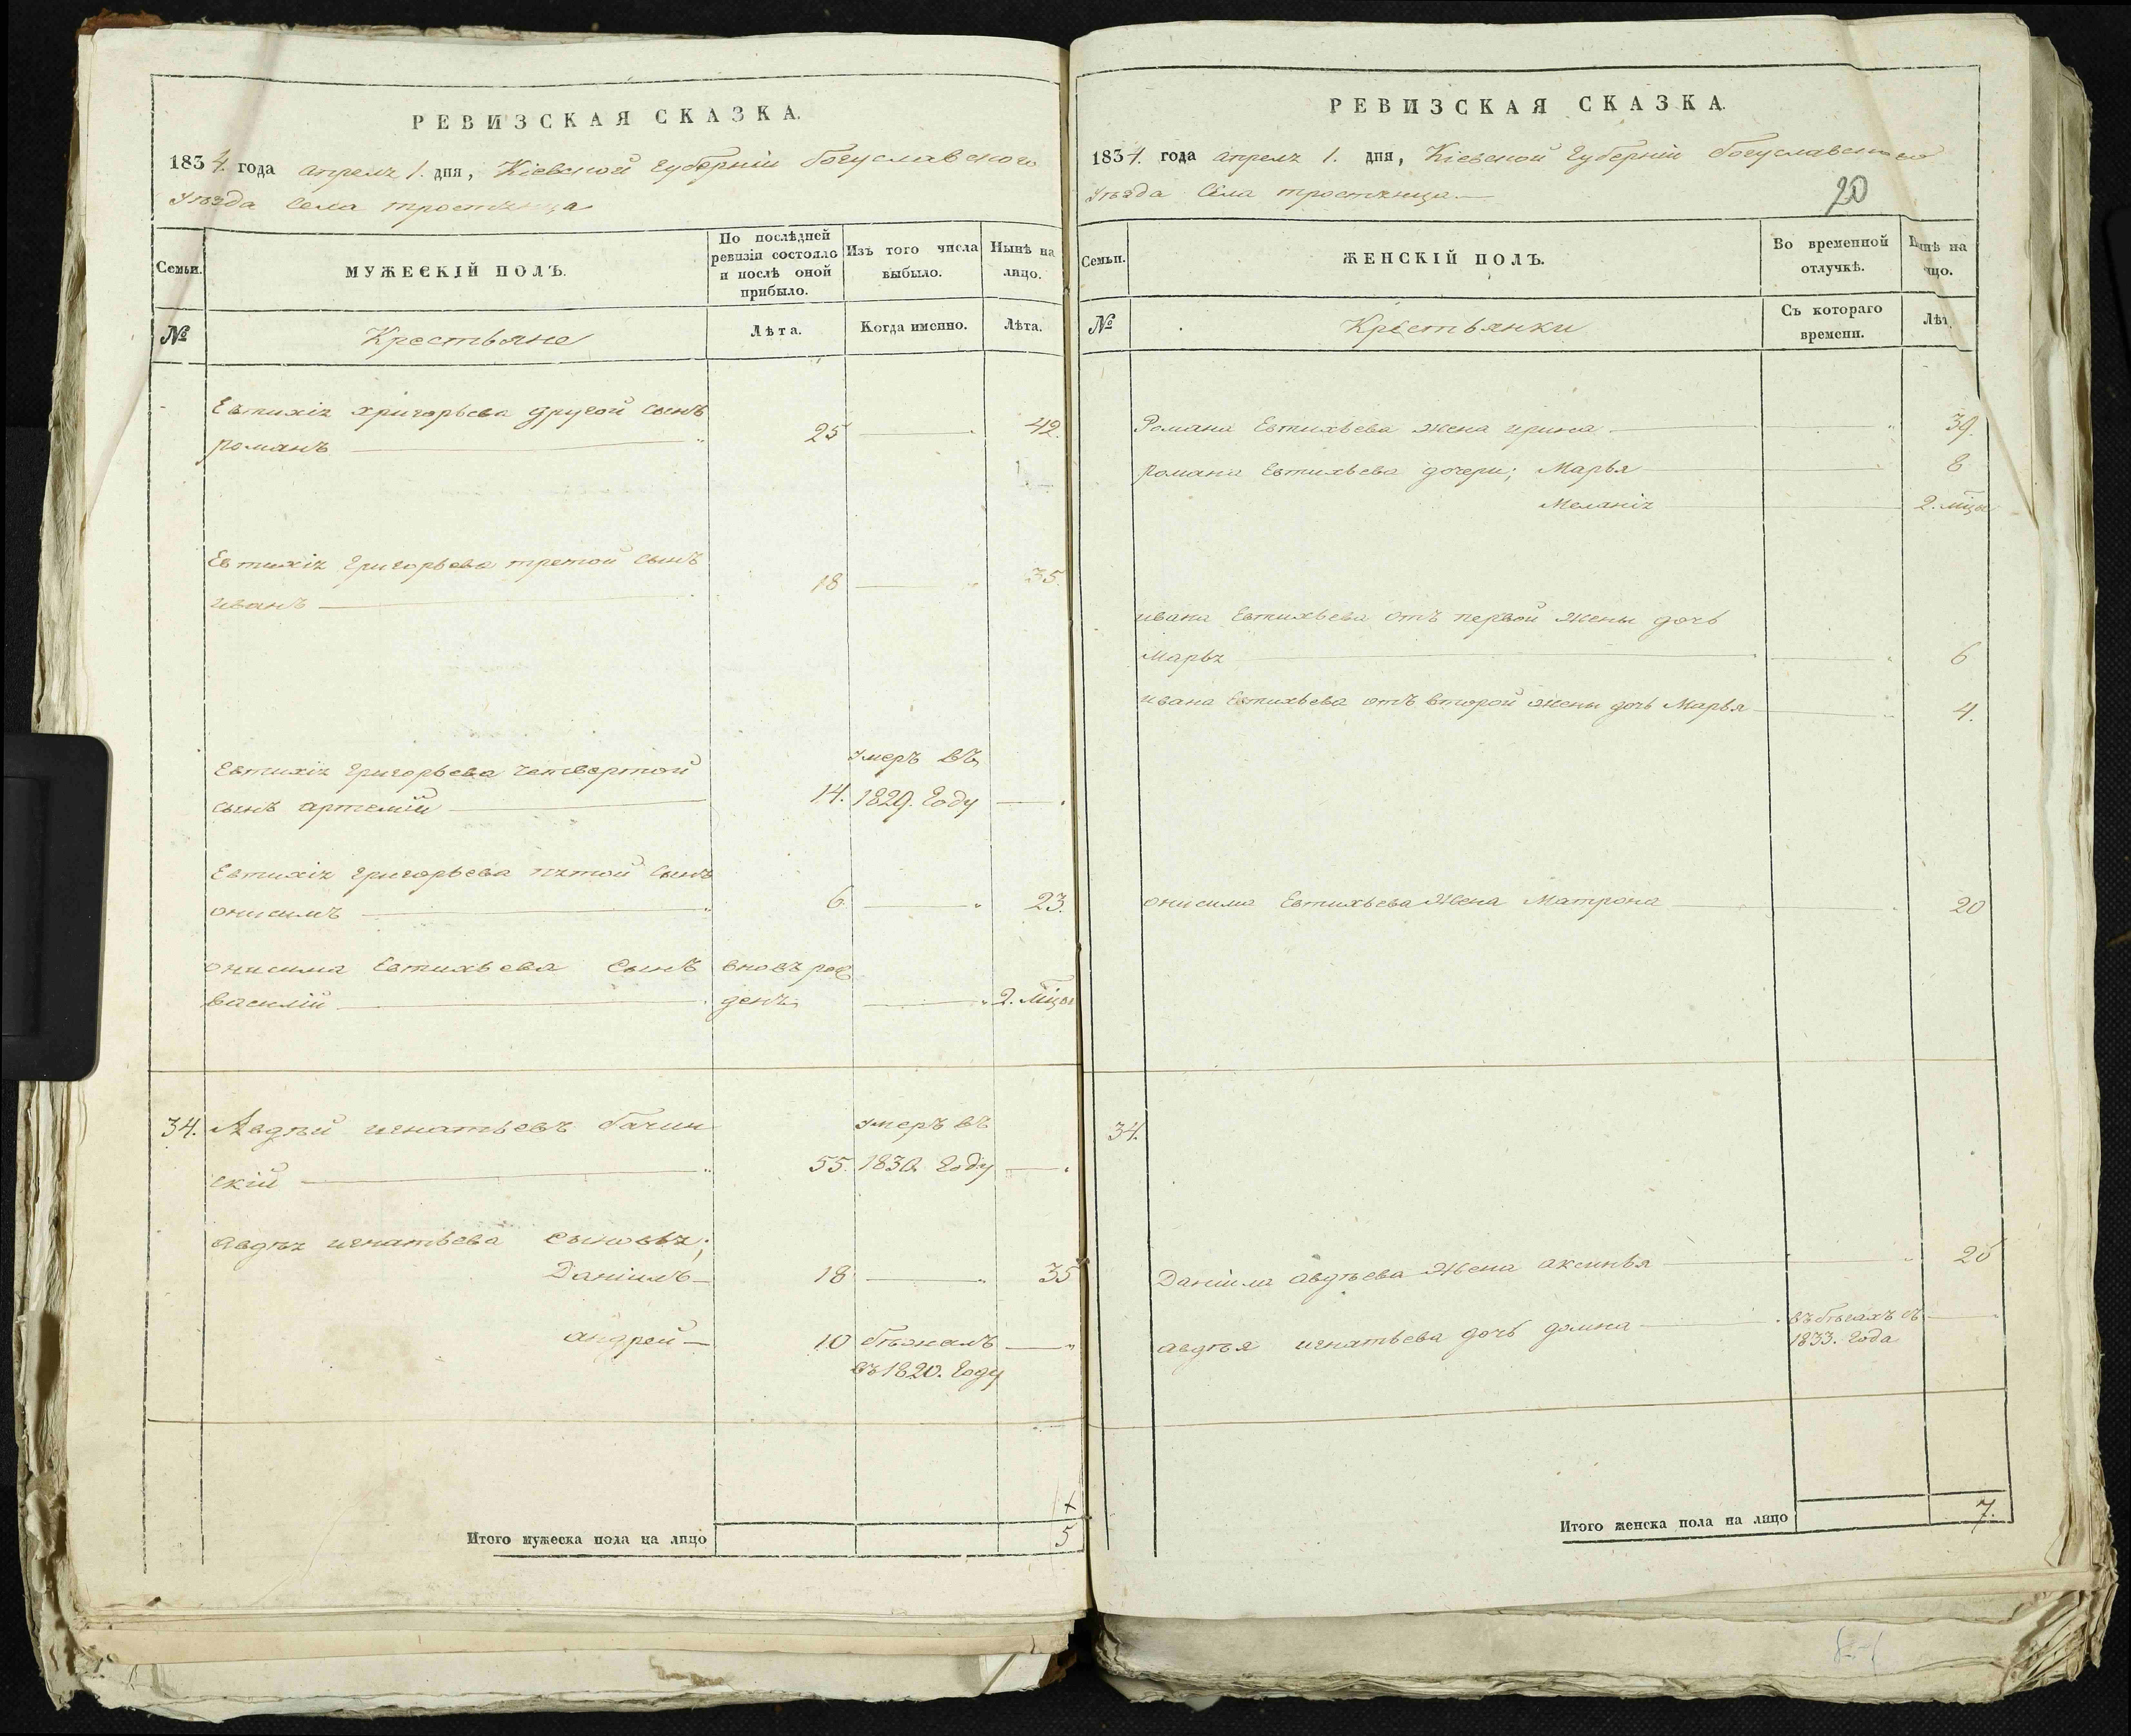 РЕВИЗСКАЯ СКАЗКА.
1834. года апреля 1. дня, Кіевской Губерніи Богуславского
уѣзда Села тростянца
Семьи.
МУЖЕСКІЙ ПОЛЪ.
По послѣдней
ревизіи состояло
и послѣ оной
прибыло.
Изъ того числа
выбыло.
Нынѣ на
лицо.
№
Крестьяне
Лѣта.
Когда именно.
Лѣта.
Евтихія хригорьева другой сынъ
романъ 25 42.
Евтихія Григорьева третой сынъ
иванъ 18 35.
Евтихія Григорьева четвертой умеръ въ
сынъ артемій 14. 1829. Году
Евтихія Григорьева пятой сынъ
онисимъ 6. 23.
онисима Евтихьева сынъ вновь рож
василій денъ 2. мцы
34. Авдѣй игнатьевъ бачин умеръ въ
скій 55. 1830. Году
авдѣя игнатьева сыновья;
Даніилъ 18 35
андрей 10 бѣжалъ
въ 1820. Году
Итого мужеска пола на лицо 5
РЕВИЗСКАЯ СКАЗКА.
1834. года апреля 1. дня, Кіевской Губерніи Богуславского
уѣзда Села тростянца
20
Семьи.
ЖЕНСКІЙ ПОЛЪ.
Во временной
отлучкѣ.
Нынѣ на
лицо.
№
Крестьянки
Съ котораго
времени.
Лѣт
Романа Евтихьева жена ирина 39.
романа Евтихьева дочери; Марья 8
Меланія 2. мцы
ивана Евтихьева отъ первой жены дочь
марья 6
ивана Евтихьева отъ второй жены дочь Марья 4.
онисима Евтихьева жена Матрона 20
34.
Даніила авдѣева жена аксинья 26
авдѣя игнатьева дочь домна въ бѣгахъ съ
1833. Года
Итого женска пола на лицо 7.